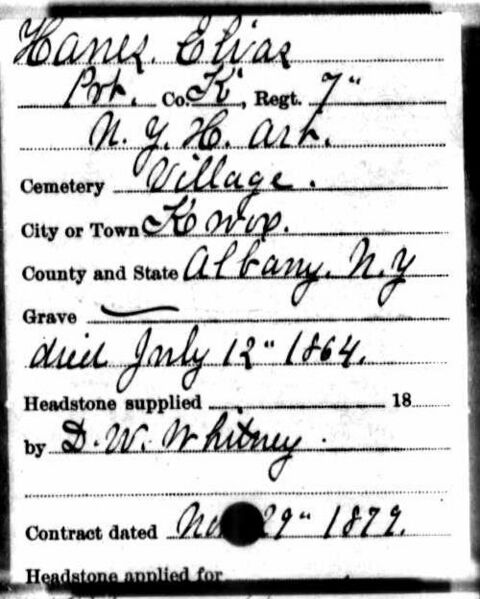 Hanes, Elias
Pvt. Co. K, Regt. 7"
N. Y. H. Art.
Cemetery Village.
City or Town Knox.
County and State Albany, N.Y
Grave
died July 12" 1864.
Headstone supplied 18
by D. W. Whitney.
Contract dated 29" 1879.
Headstone applied for